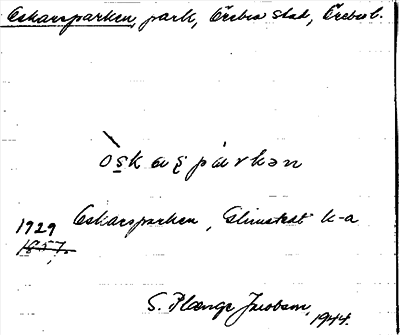 Oskarsparken, park, Örebro stad, Örebro l.
òskaṣpárkən
1929 Oskarsparken, Elmstedt k-a
1857.
S. Plænge Jacobson, 1944.